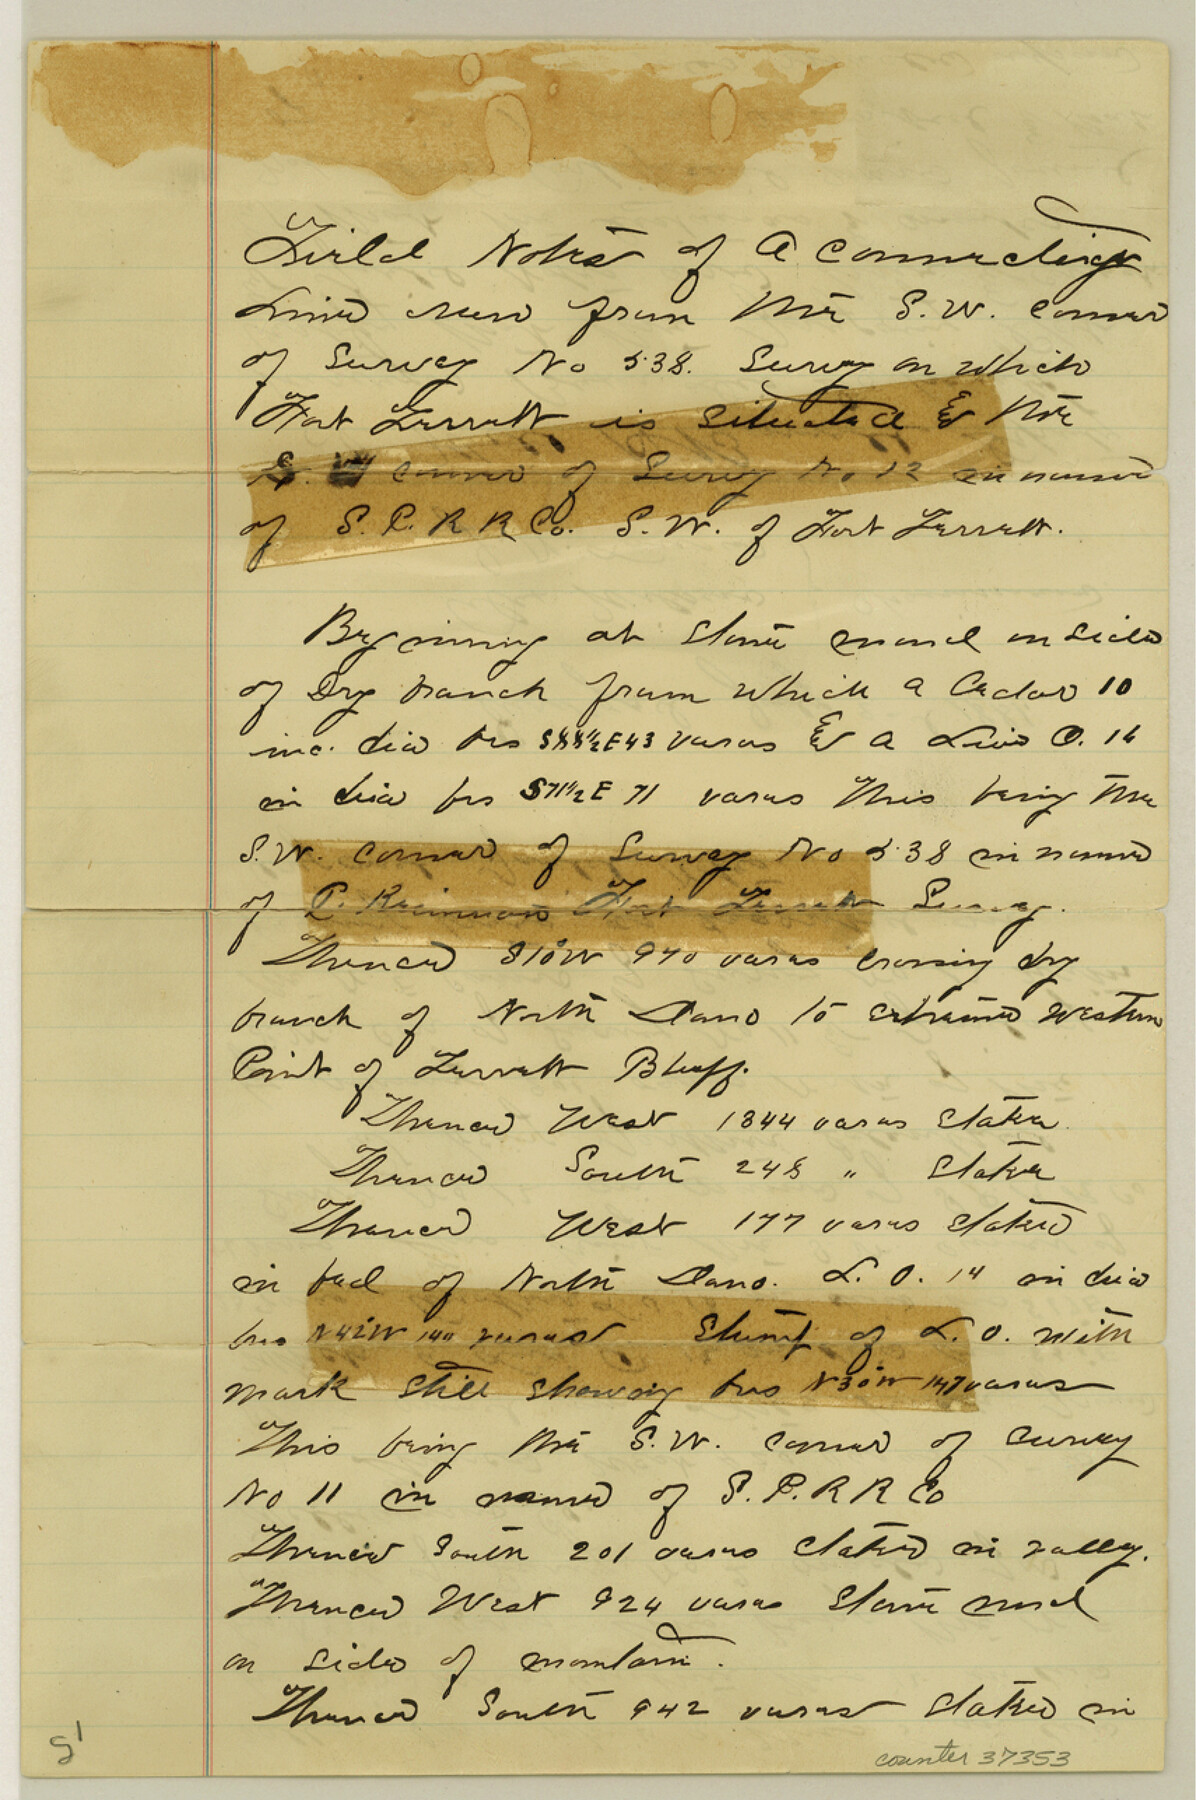 Field Notes of A Connecting
Line run from the S.W. corner
of Survey No 538. Survey on which
Fort Terrett is situated & the
S. W corner of Survey No 12 in name
of S. P. R R Co. S. W. of Fort Terrett.
Beginning at Stone mound on side
of Dry branch from which a Cedar 10
inc. dia brs E 43 varas & a Live O. 16
in dia brs S 71 1/2 E 71 varas this being the
S. W. corner of Survey No 538 in name
of P. Fort Terrett Survey.
Thence S 10° W 970 varas crossing dry
branch of North Llano to extreme western
Point of Terrett Bluff.
Thence West 1344 varas Stake
Thence South 248 " Stake
Thence West 177 varas Stake
in bed of North Llano. L. O. 14 in dia
brs N 42° W 140 varas Stump of L. O. with
mark still showing brs N 30° W 147 varas
This being the S. W. corner of Survey
No 11 in name of S. P. R R Co
Thence South 201 varas Stake in valley.
Thence West 924 varas Stone md
on side of mountain.
Thence South 942 varas Stake in
counter 37353